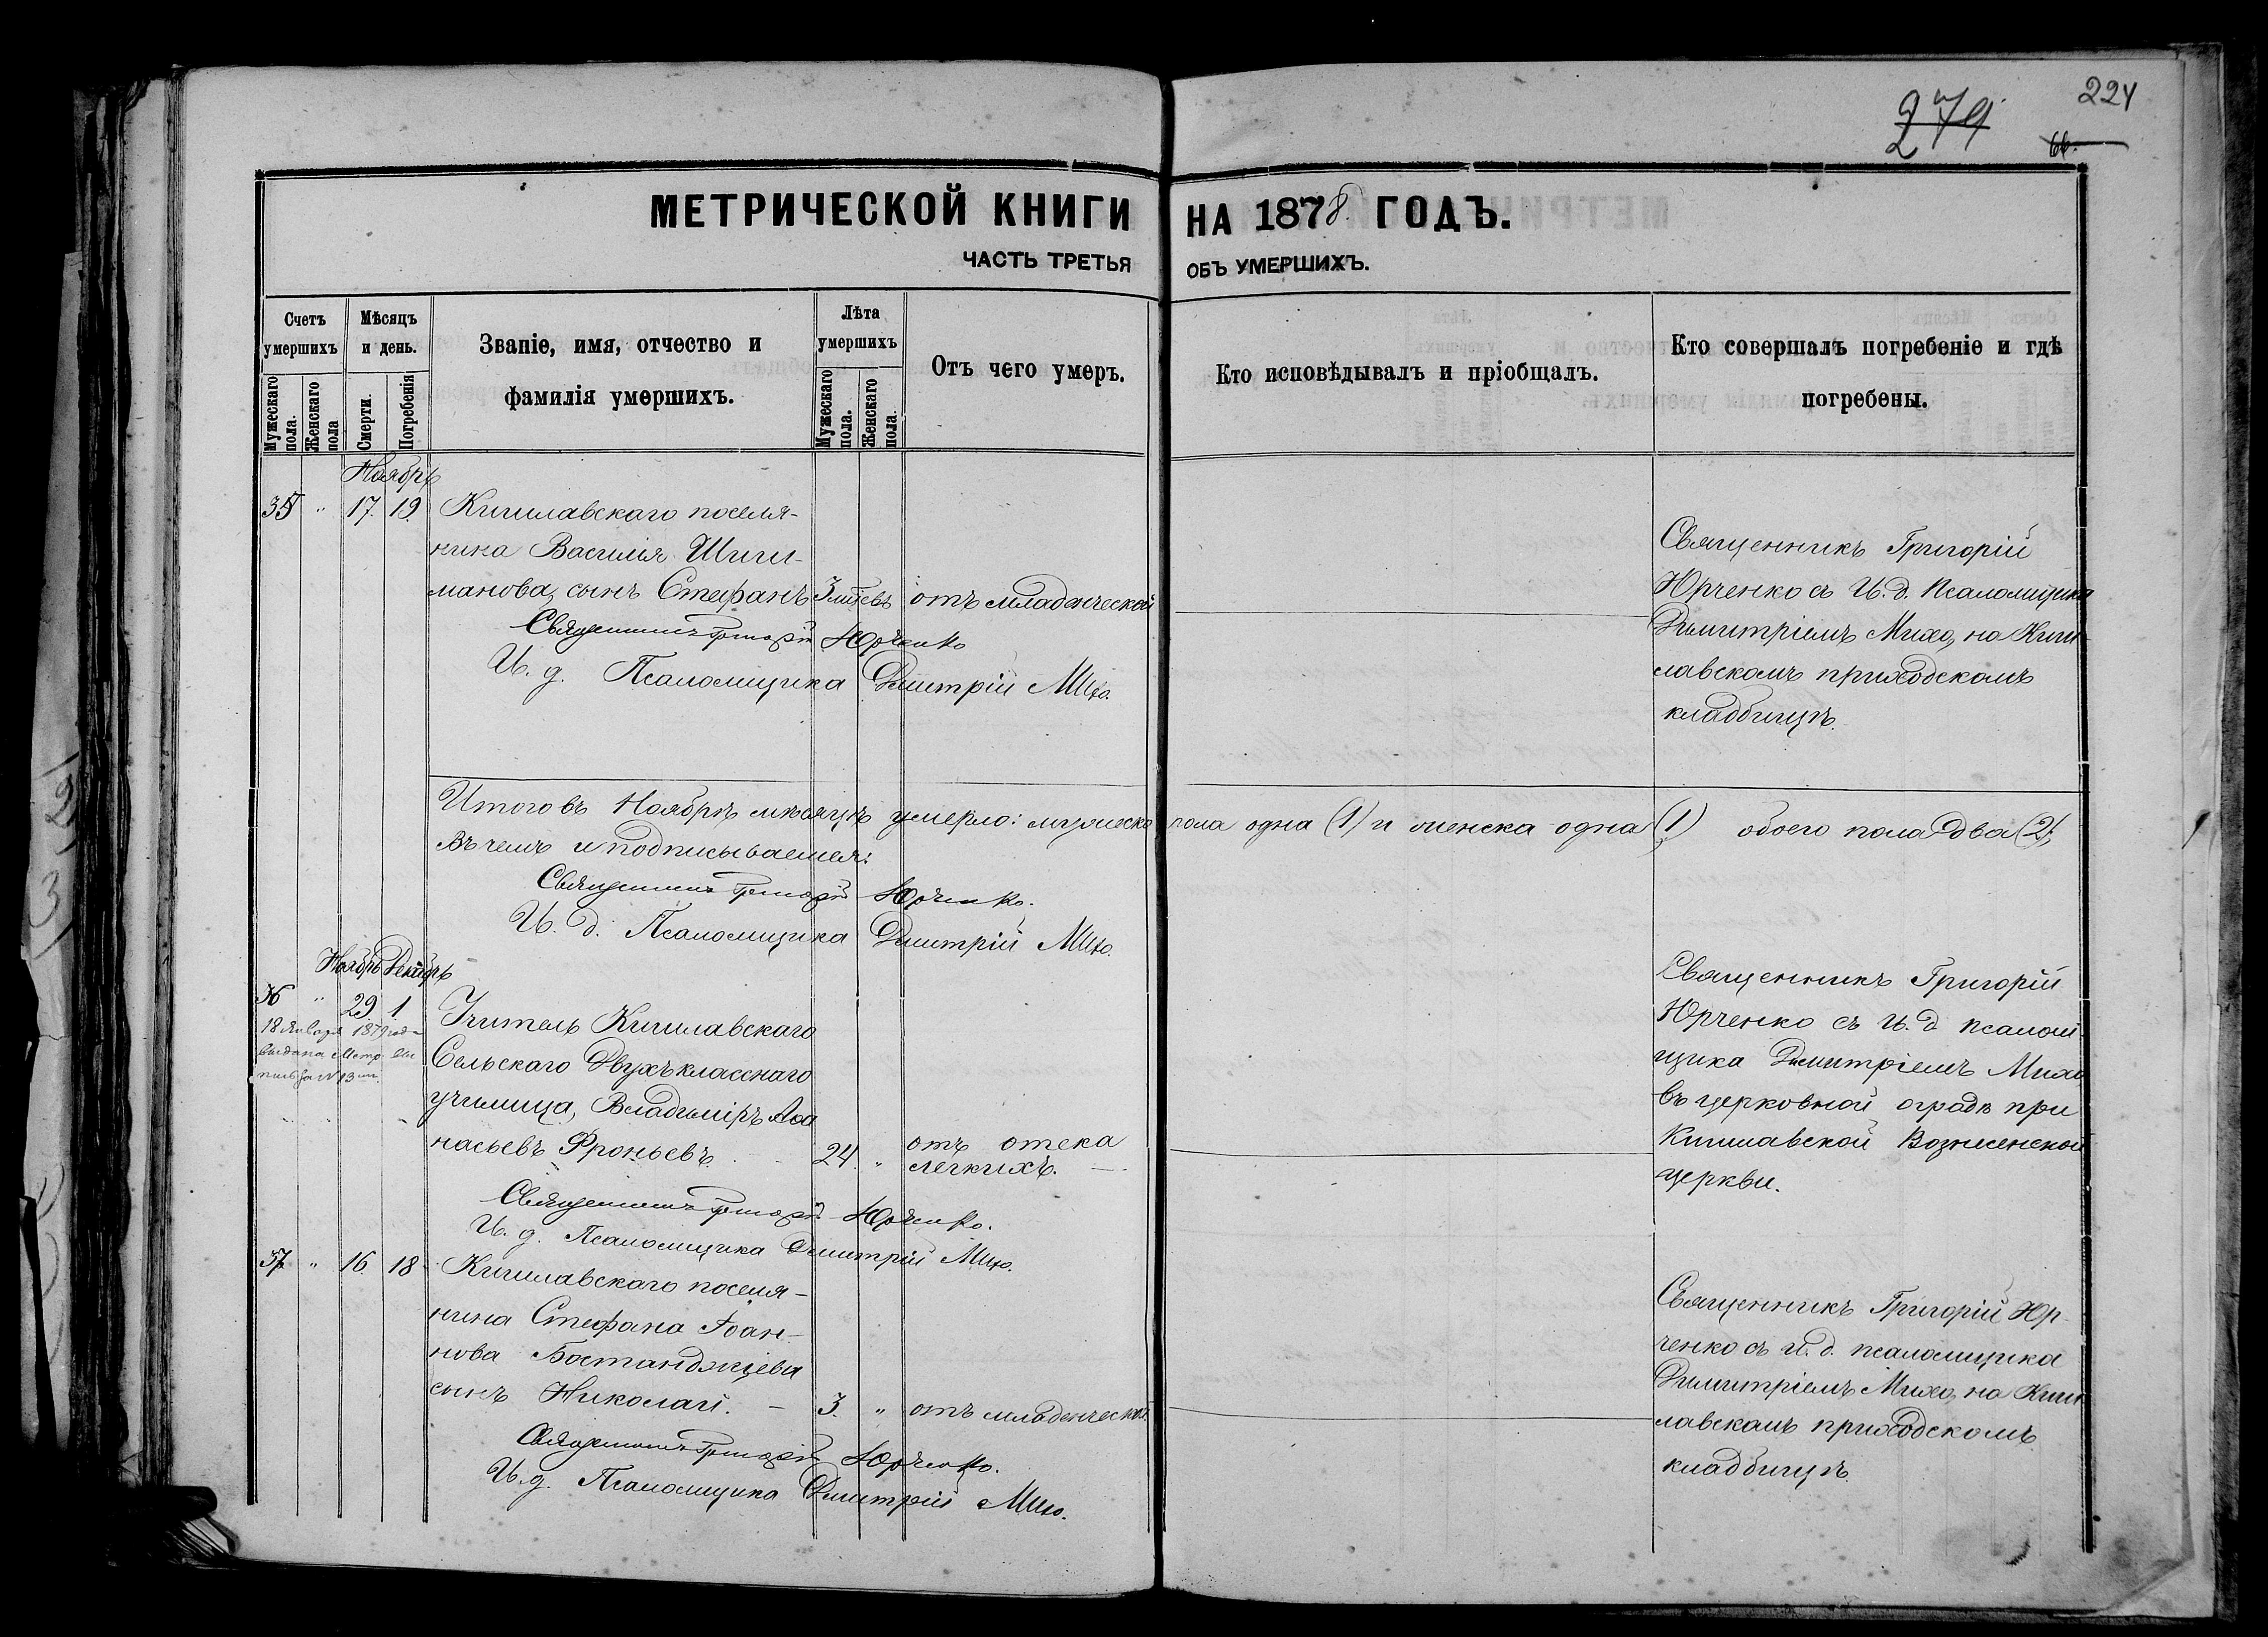 224
279
66.
МЕТРИЧЕСКОЙ КНИГИ НА 1878. ГОДЪ.
ЧАСТЬ ТРЕТЬЯ ОБЪ УМЕРШИХЪ.
Счетъ умершихъ
Мужескаго пола.
Женскаго пола
Мѣсяцъ и день.
Смерти.
Погребенія
Званіе, имя, отчество и
фамилія умершихъ.
Лѣта умершихъ
Мужескаго пола.
Женскаго пола
Отъ чего умеръ.
Кто исповѣдывалъ и пріобщалъ.
Кто совершалъ погребеніе и гдѣ
погребены.
Ноябрь
35 " 17. 19. Кишлавскаго поселя-
нина Василія Шиши-
манова, сынъ Стефанъ 3 отъ младенческой
Священникъ Григорій Юрченко
И. д. Псаломщика Дмитрій Михо.
Священникъ Григорій
Юрченко съ И. д. Псаломщика
Димитріемъ Михо, на Киш-
лавскомъ приходскомъ
кладбищѣ.
Итого въ Ноябрѣ мѣсяцѣ умерло: мужеска пола одна (1) и женска одна (1) обоего пола два (2),
въ чемъ и подписываемся:
Священникъ Григорій Юрченко.
И. д. Псаломщика Дмитрій Михо.
Ноябрь Декабрь
36 " 29 1 Учитель Кишлавскаго
18 Января 1879 года
выдана Метр. Вы
пись за № 13
Сельскаго Двухъкласснаго
училища, Владиміръ Аѳа
насьевъ Фроньевъ. 24. " отъ отека
легкихъ.
Священникъ Григорій Юрченко.
И. д. Псаломщика Дмитрій Михо.
Священникъ Григорій
Юрченко съ И. д псалом
щика Димитріемъ Михо
въ церковной оградѣ при
Кишлавской Вознесенской
церкви.
37 " 16. 18 Кишлавскаго поселя-
нина Стефана Іоан-
нова Бостанджіева
сынъ Николай. 3. " отъ младенческой.
Священникъ Григорій Юрченко.
И. д. Псаломщика Дмитрій Михо.
Священникъ Григорій Юр-
ченко съ и. д. псаломщика
Димитріемъ Михо, на Киш
лавскомъ приходскомъ
кладбищѣ.